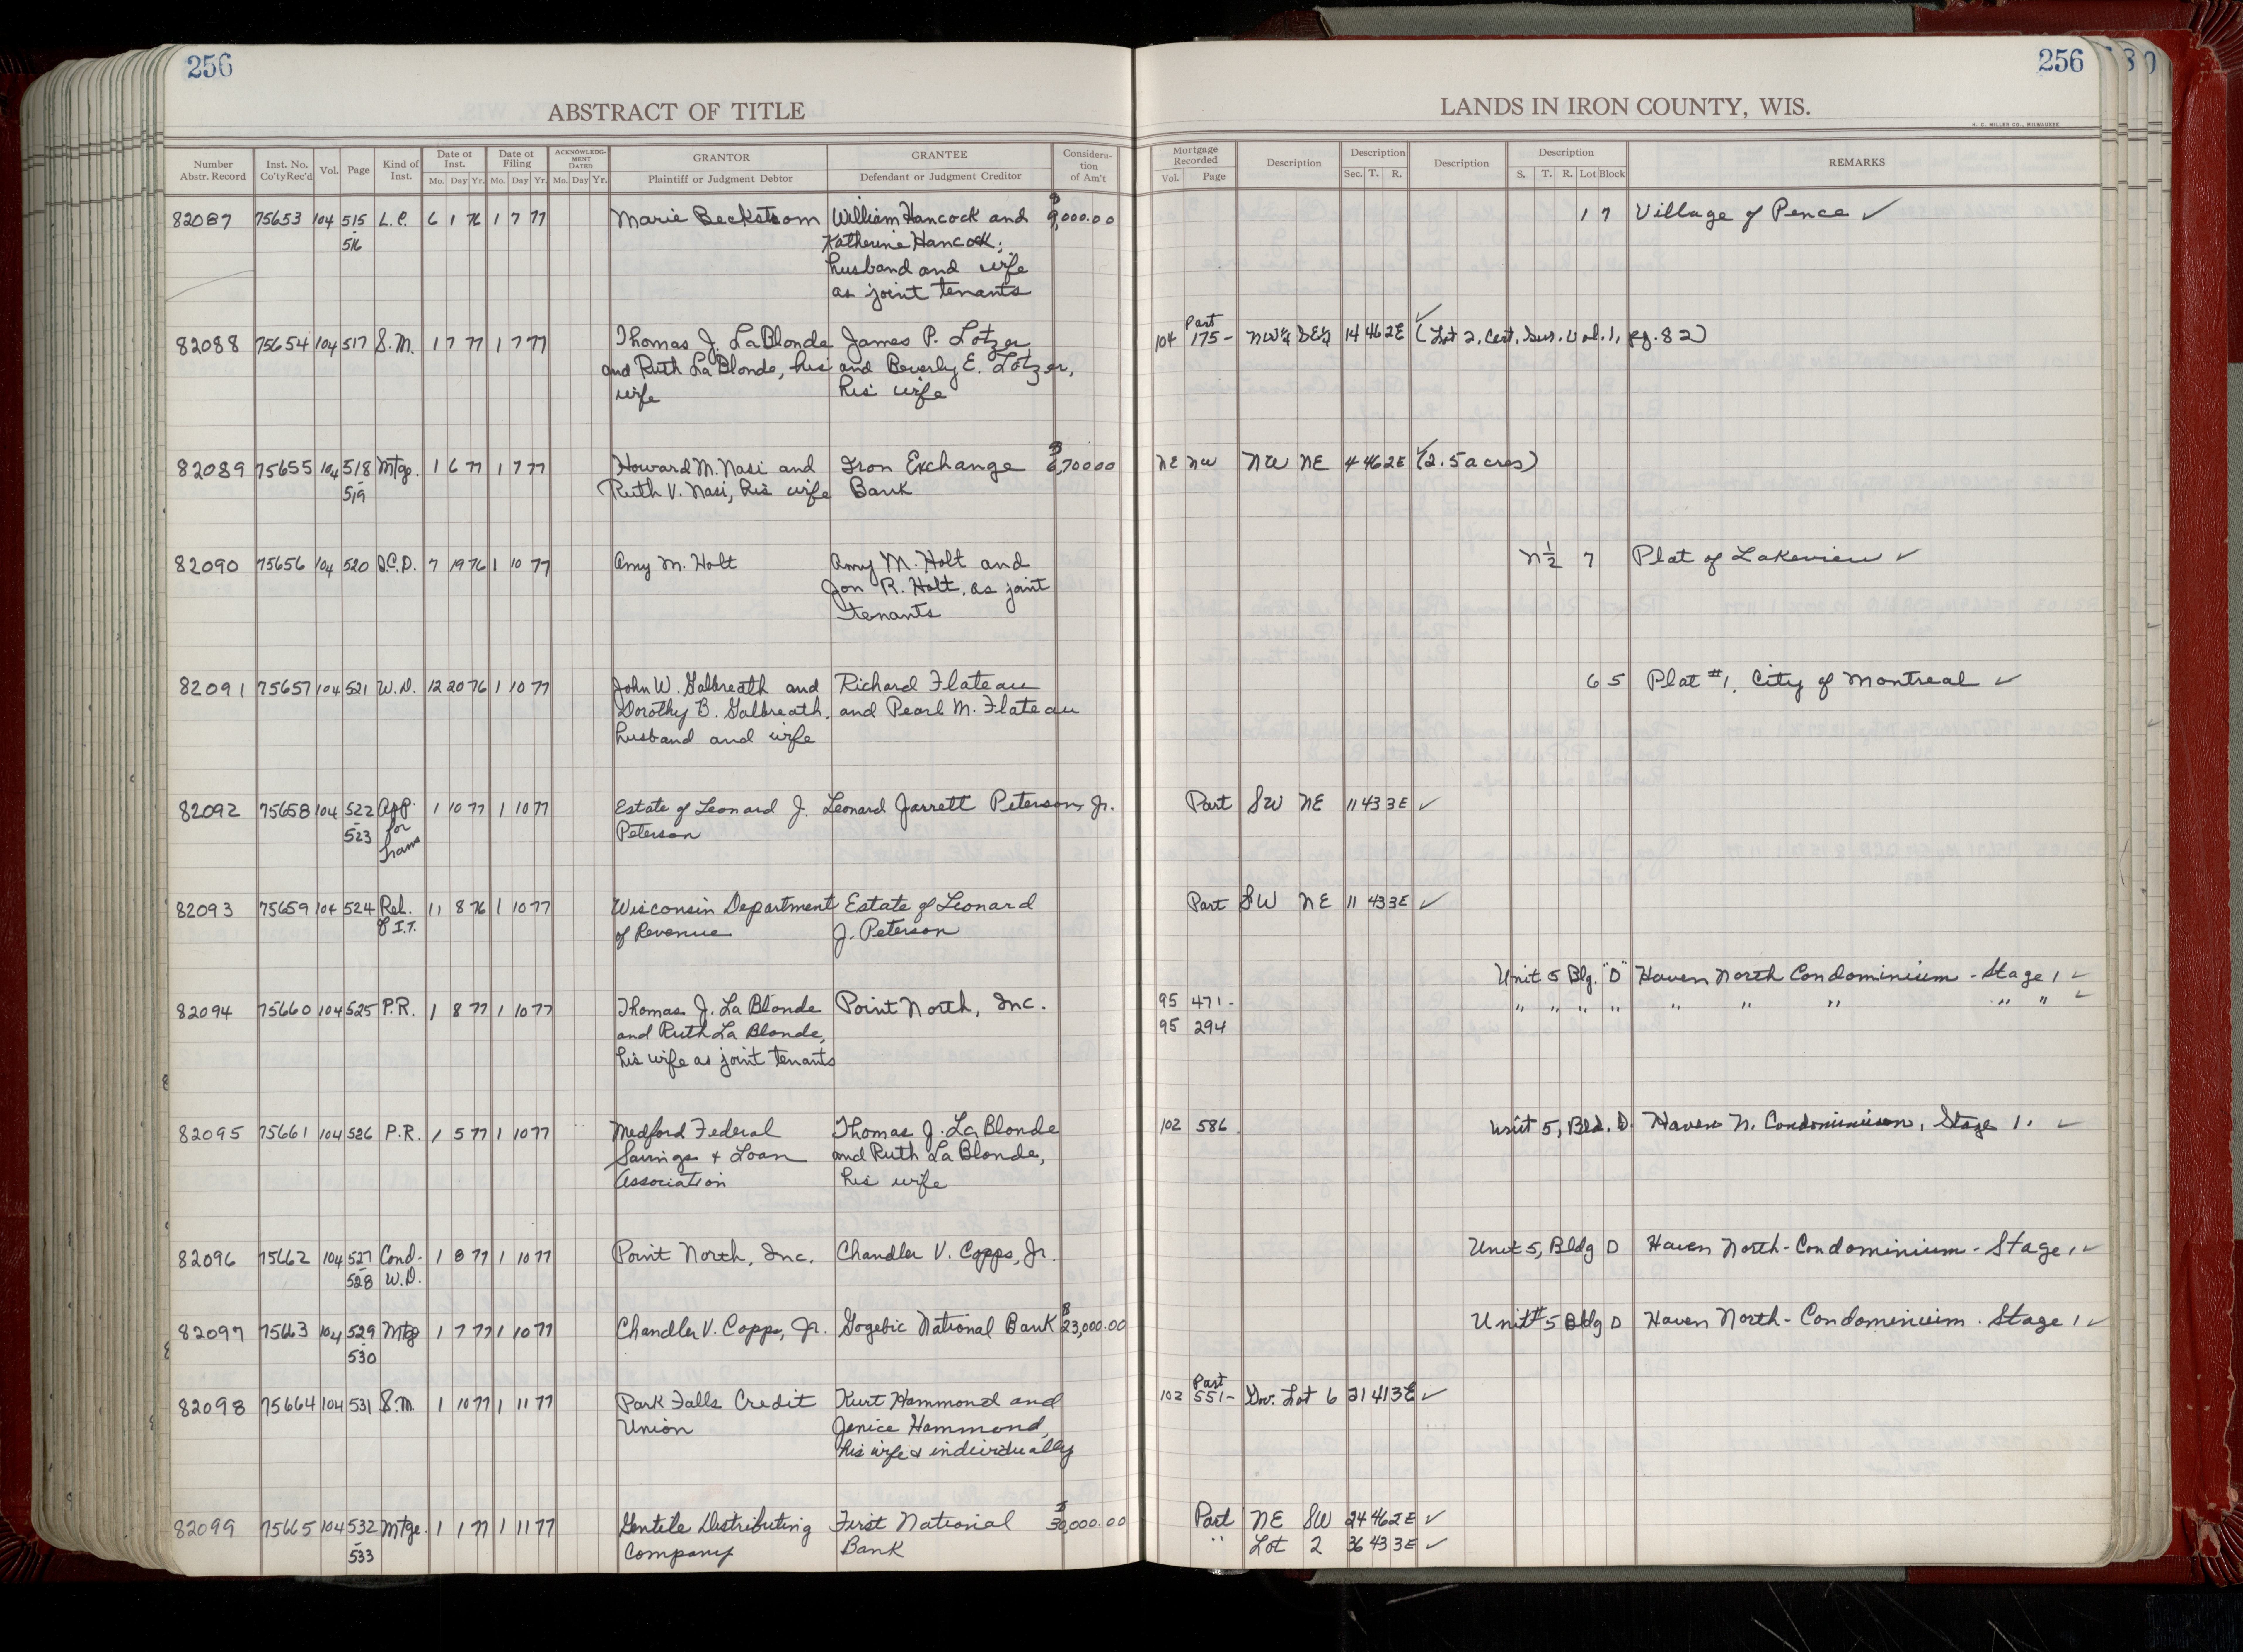 256
256
ABSTRACT OF TITLE
LANDS IN IRON COUNTY, WIS.
H. C. MILLER CO., MILWAUKEE
Number Abstr. Record Inst. No. Co'ty Rec'd Vol. Page Kind of Inst. Date of Inst. Mo. Day Yr. Date of Filing Mo. Day Yr. ACKNOWLEDGMENT DATED Mo. Day Yr. GRANTOR Plaintiff or Judgment Debtor GRANTEE Defendant or Judgment Creditor Consideration of Am't Mortgage Recorded Vol. Page Description Description Sec. T. R. Description Description S. T. R. Lot Block REMARKS
82087 75653 104 515 L.C. 6 1 76 1 7 77 Marie Beckstrom William Hancock and $9,000.00 1 7 Village of Pence ✓
-516 Katherine Hancock,
husband and wife
as joint tenants
Part
82088 75654 104 517 S.M. 1 7 77 1 7 77 Thomas J. LaBlonde James P. Lotzer 104 175- NW¼ SE¼ 14 46 2E ✓ (Lot 2, Cert. Sur. Vol. 1, pg. 82)
and Ruth LaBlonde, his and Beverly E. Lotzer,
wife his wife
82089 75655 104 518 Mtge. 1 6 77 1 7 77 Howard M. Nasi and Iron Exchange $6,700.00 NE NW NW NE 4 46 2E ✓ (2.5 acres)
-519 Ruth V. Nasi, his wife Bank
82090 75656 104 520 Q.C.D. 7 19 76 1 10 77 Amy M. Holt Amy M. Holt and N½ 7 Plat of Lakeview ✓
Jon R. Holt, as joint
tenants
82091 75657 104 521 W.D. 12 20 76 1 10 77 John W. Galbreath and Richard Flateau 6 5 Plat #1, City of Montreal ✓
Dorothy B. Galbreath, and Pearl M. Flateau
husband and wife
82092 75658 104 522 App. 1 10 77 1 10 77 Estate of Leonard J. Leonard Jarrett Peterson, Jr. Part SW NE 11 43 3E ✓
-523 for Trans Peterson
82093 75659 104 524 Rel. 11 8 76 1 10 77 Wisconsin Department Estate of Leonard Part SW NE 11 43 3E ✓
of I.T. of Revenue J. Peterson
Unit 5 Blg. "D" Haven North Condominium - Stage 1 ✓
82094 75660 104 525 P.R. 1 8 77 1 10 77 Thomas J. La Blonde Point North, Inc. 95 471- " " " " " " " " " ✓
and Ruth La Blonde, 95 294
his wife as joint tenants
82095 75661 104 526 P.R. 1 5 77 1 10 77 Medford Federal Thomas J. La Blonde 102 586 Unit 5, Bld. D. Haven N. Condominium, Stage 1. ✓
Savings + Loan and Ruth La Blonde,
Association his wife
82096 75662 104 527 Cond. 1 8 77 1 10 77 Point North, Inc. Chandler V. Copps, Jr. Unit 5, Bldg D Haven North-Condominium - Stage 1 ✓
-528 W.D.
82097 75663 104 529 Mtge 1 7 77 1 10 77 Chandler V. Copps, Jr. Gogebic National Bank $23,000.00 Unit #5 Bldg D Haven North-Condominium. Stage 1 ✓
-530
Part
82098 75664 104 531 S.M. 1 10 77 1 11 77 Park Falls Credit Kurt Hammond and 102 551- Gov. Lot 6 21 41 3E ✓
Union Janice Hammond,
his wife & individually
82099 75665 104 532 Mtge. 1 1 77 1 11 77 Gentile Distributing First National $30,000.00 Part NE SW 24 46 2E ✓
-533 Company Bank " Lot 2 36 43 3E ✓